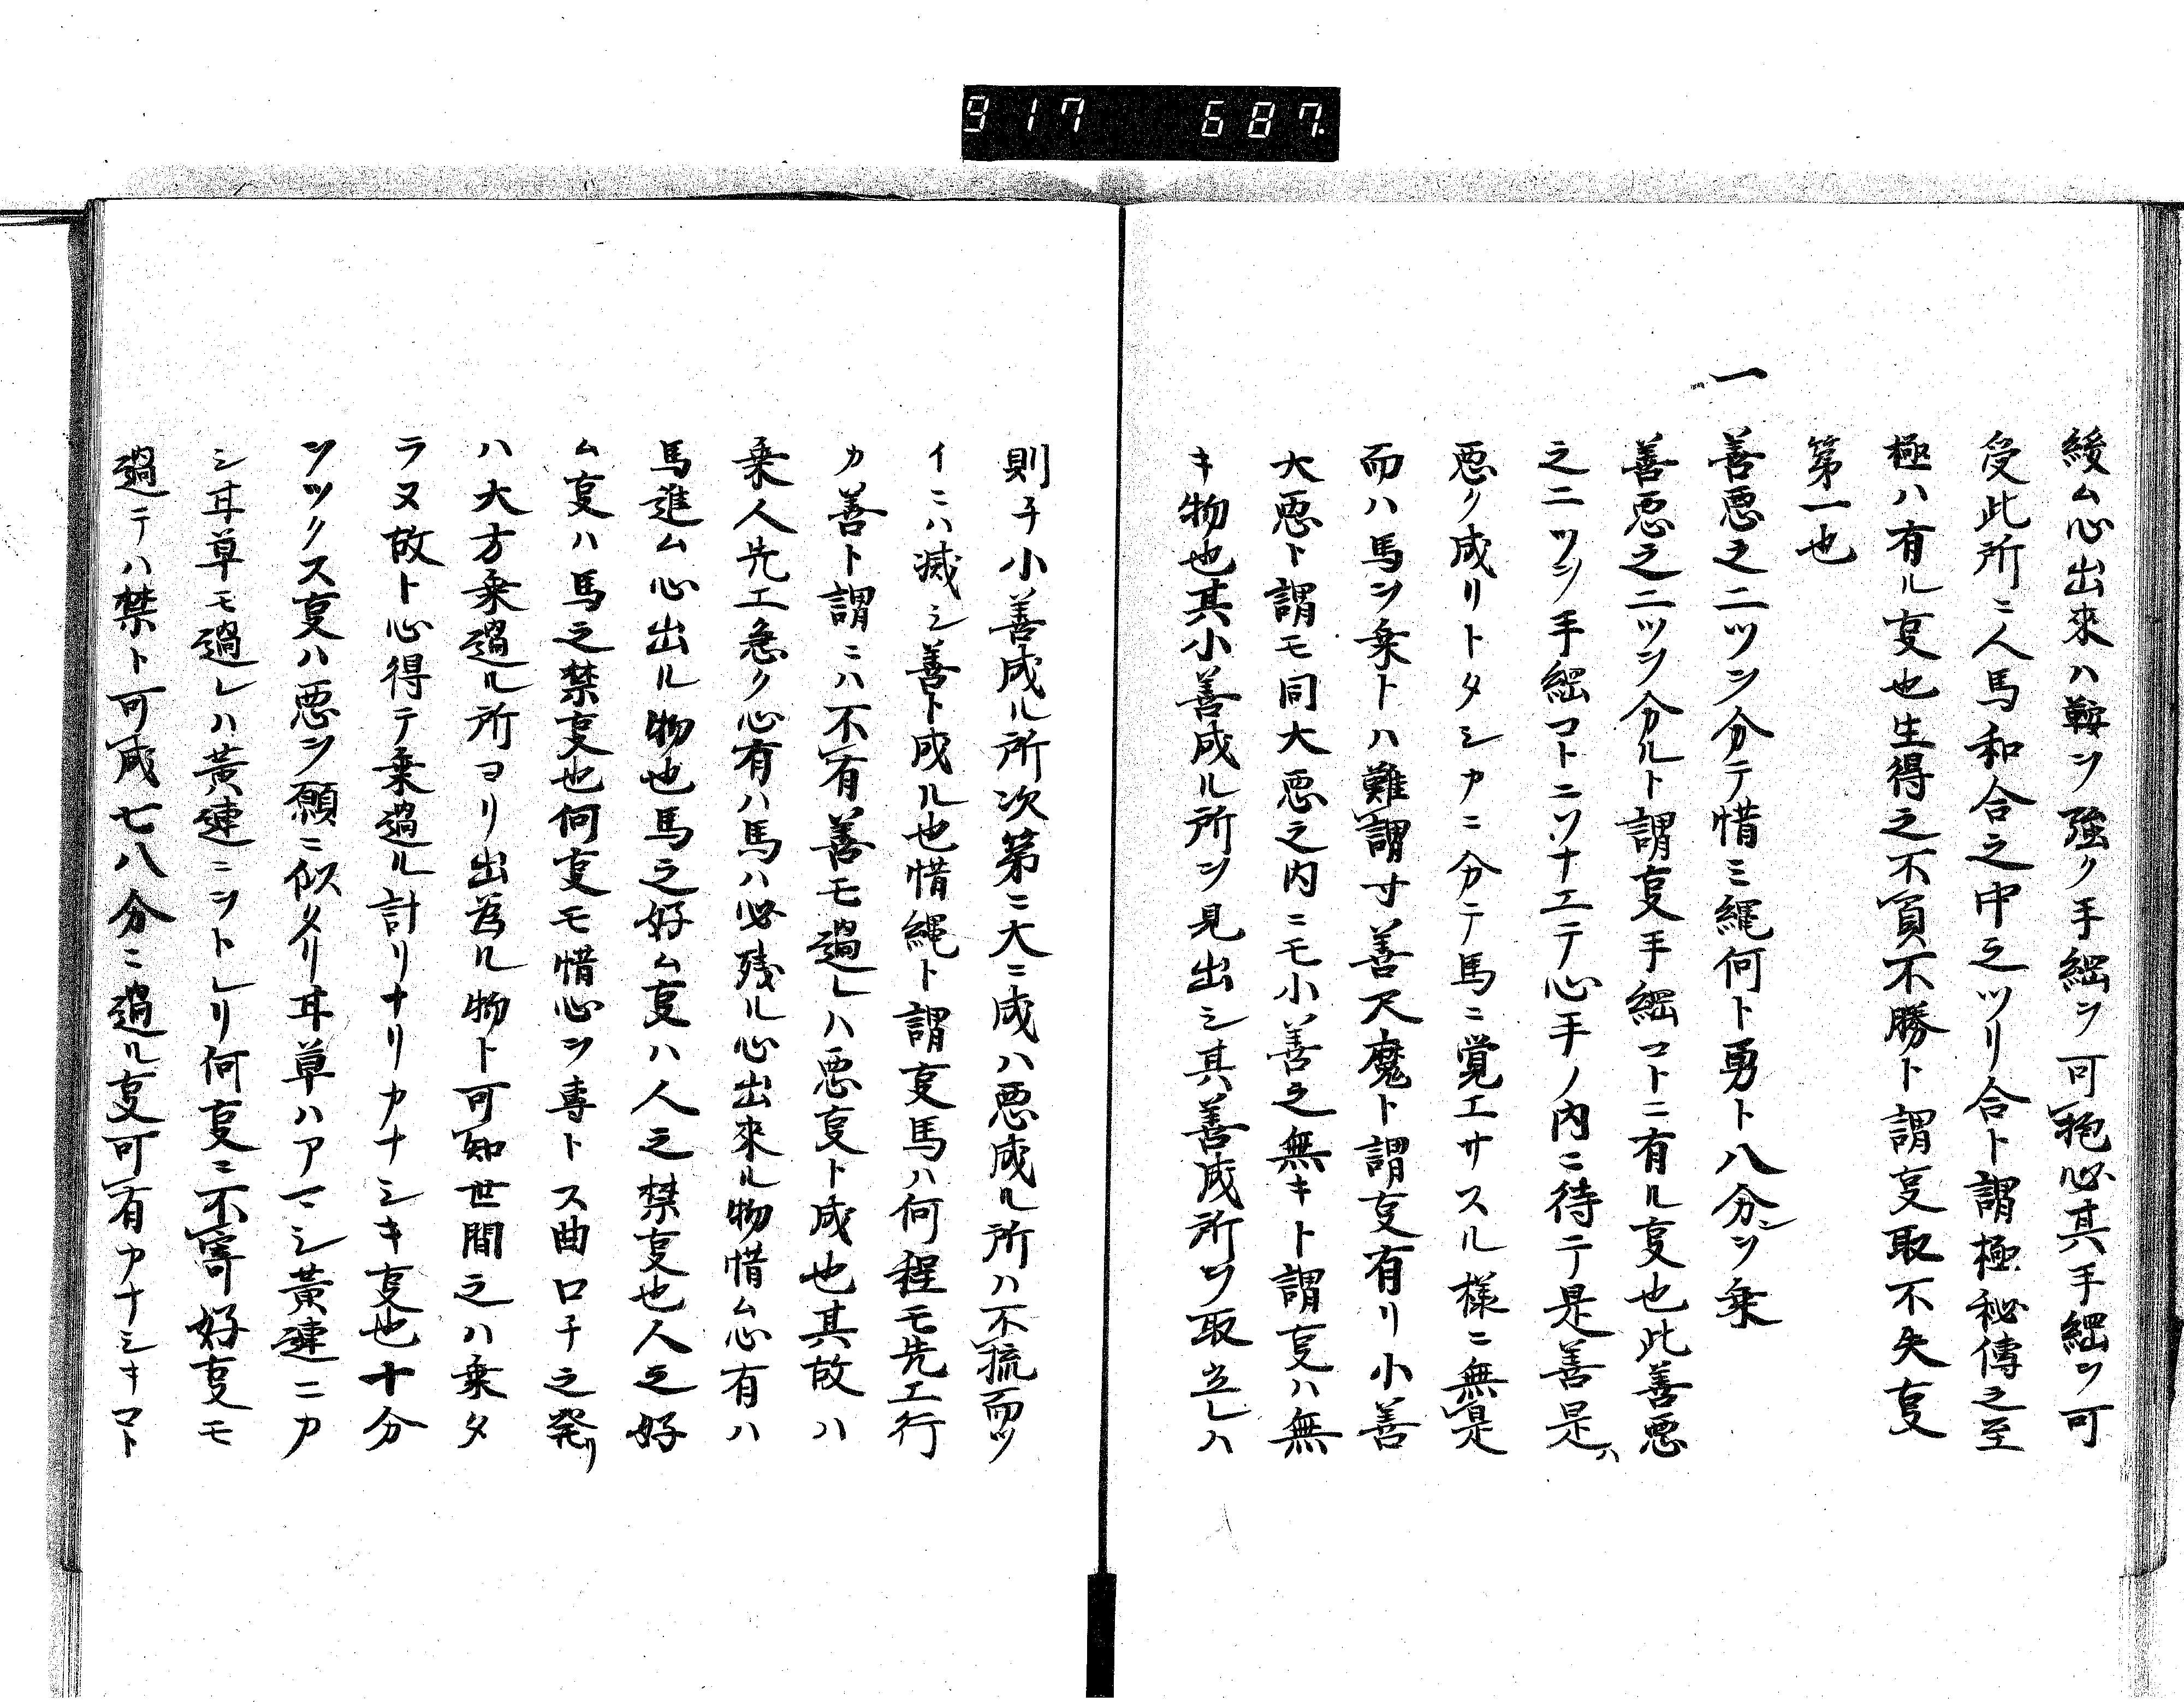 917 687.
緩ム心出來ハ鞍ヲ強ク手綱ヲ可抱心其手綱ヲ可
受此所ニ人馬和合之中之ツリ合ト謂極秘傳之至
極ハ有ル事也生得之不負不勝ト謂事取不失事
第一也
一善悪之二ツヲ分テ惜ミ縄何ト勇ト八分ヲシ乗
善悪之二ツヲ分ルト謂事手綱コトニ有ル事也此善悪
之二ツヲ手綱コトニソナエテ心手ノ内ニ待テ是善是ハ
悪ク成リトタシカニ分テ馬ニ覚エサスル様ニ無是
而ハ馬ヲ乗トハ難謂寸善尺魔ト謂事有リ小善
大悪ト謂モ同大悪之内ニモ小善之無キト謂事ハ無
キ物也其小善成ル所ヲ見出シ其善成所ヲ取立レハ
則チ小善成ル所次第ニ大ニ成ハ悪成ル所ハ不疏而ツ
イニハ滅シ善ト成ル也惜縄ト謂事馬ハ何程モ先エ行
カ善ト謂ニハ不有善モ過レハ悪事ト成也其故ハ
乗人先エ急ク心有ハ馬ハ必残ル心出來ル物惜ム心有ハ
馬進ム心出ル物也馬之好ム事ハ人之禁事也人之好
ム事ハ馬之禁事也何事モ惜心ヲ専トス曲口チ之発リ
ハ大方乗過ル所ヨリ出為ル物ト可知世間之ハ乗タ
ラヌ故ト心得テ乗過ル計リナリカナシキ事也十分
ヲツクス事ハ悪ヲ願ニ似タリ耳草ハアマシ黄連ニカ
シ耳草モ過レハ黄連ニヲトレリ何事ニ不寄好事モ
過テハ禁ト可成七八分ニ過ル事可有カナシキマト